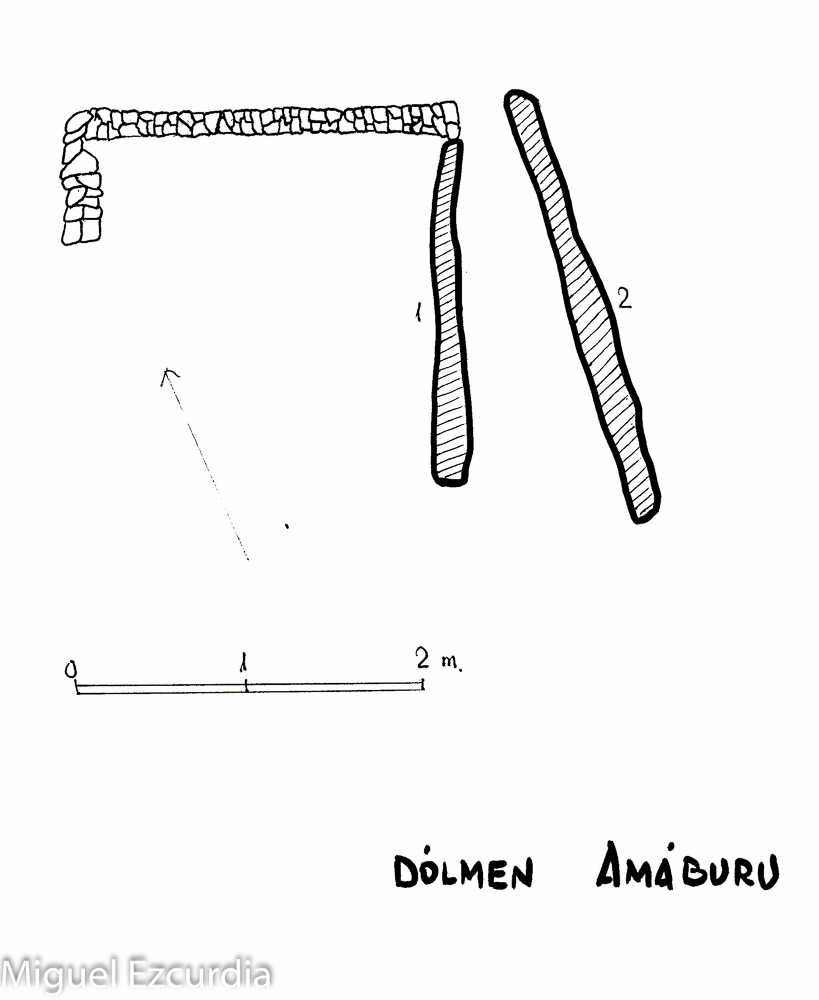 2
1
0 1 2 m.
DÓLMEN AMÁBURU
Miguel Ezcurdia